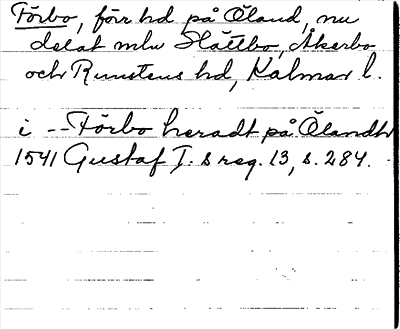 Förbo, förr hd på Öland, nu
delat mln Slättbo, Åkerbo
och Runstens hd, Kalmar l.
i -- Förbo heradt på Ölandh
1541 Gustaf I:s reg. 13, s. 284.